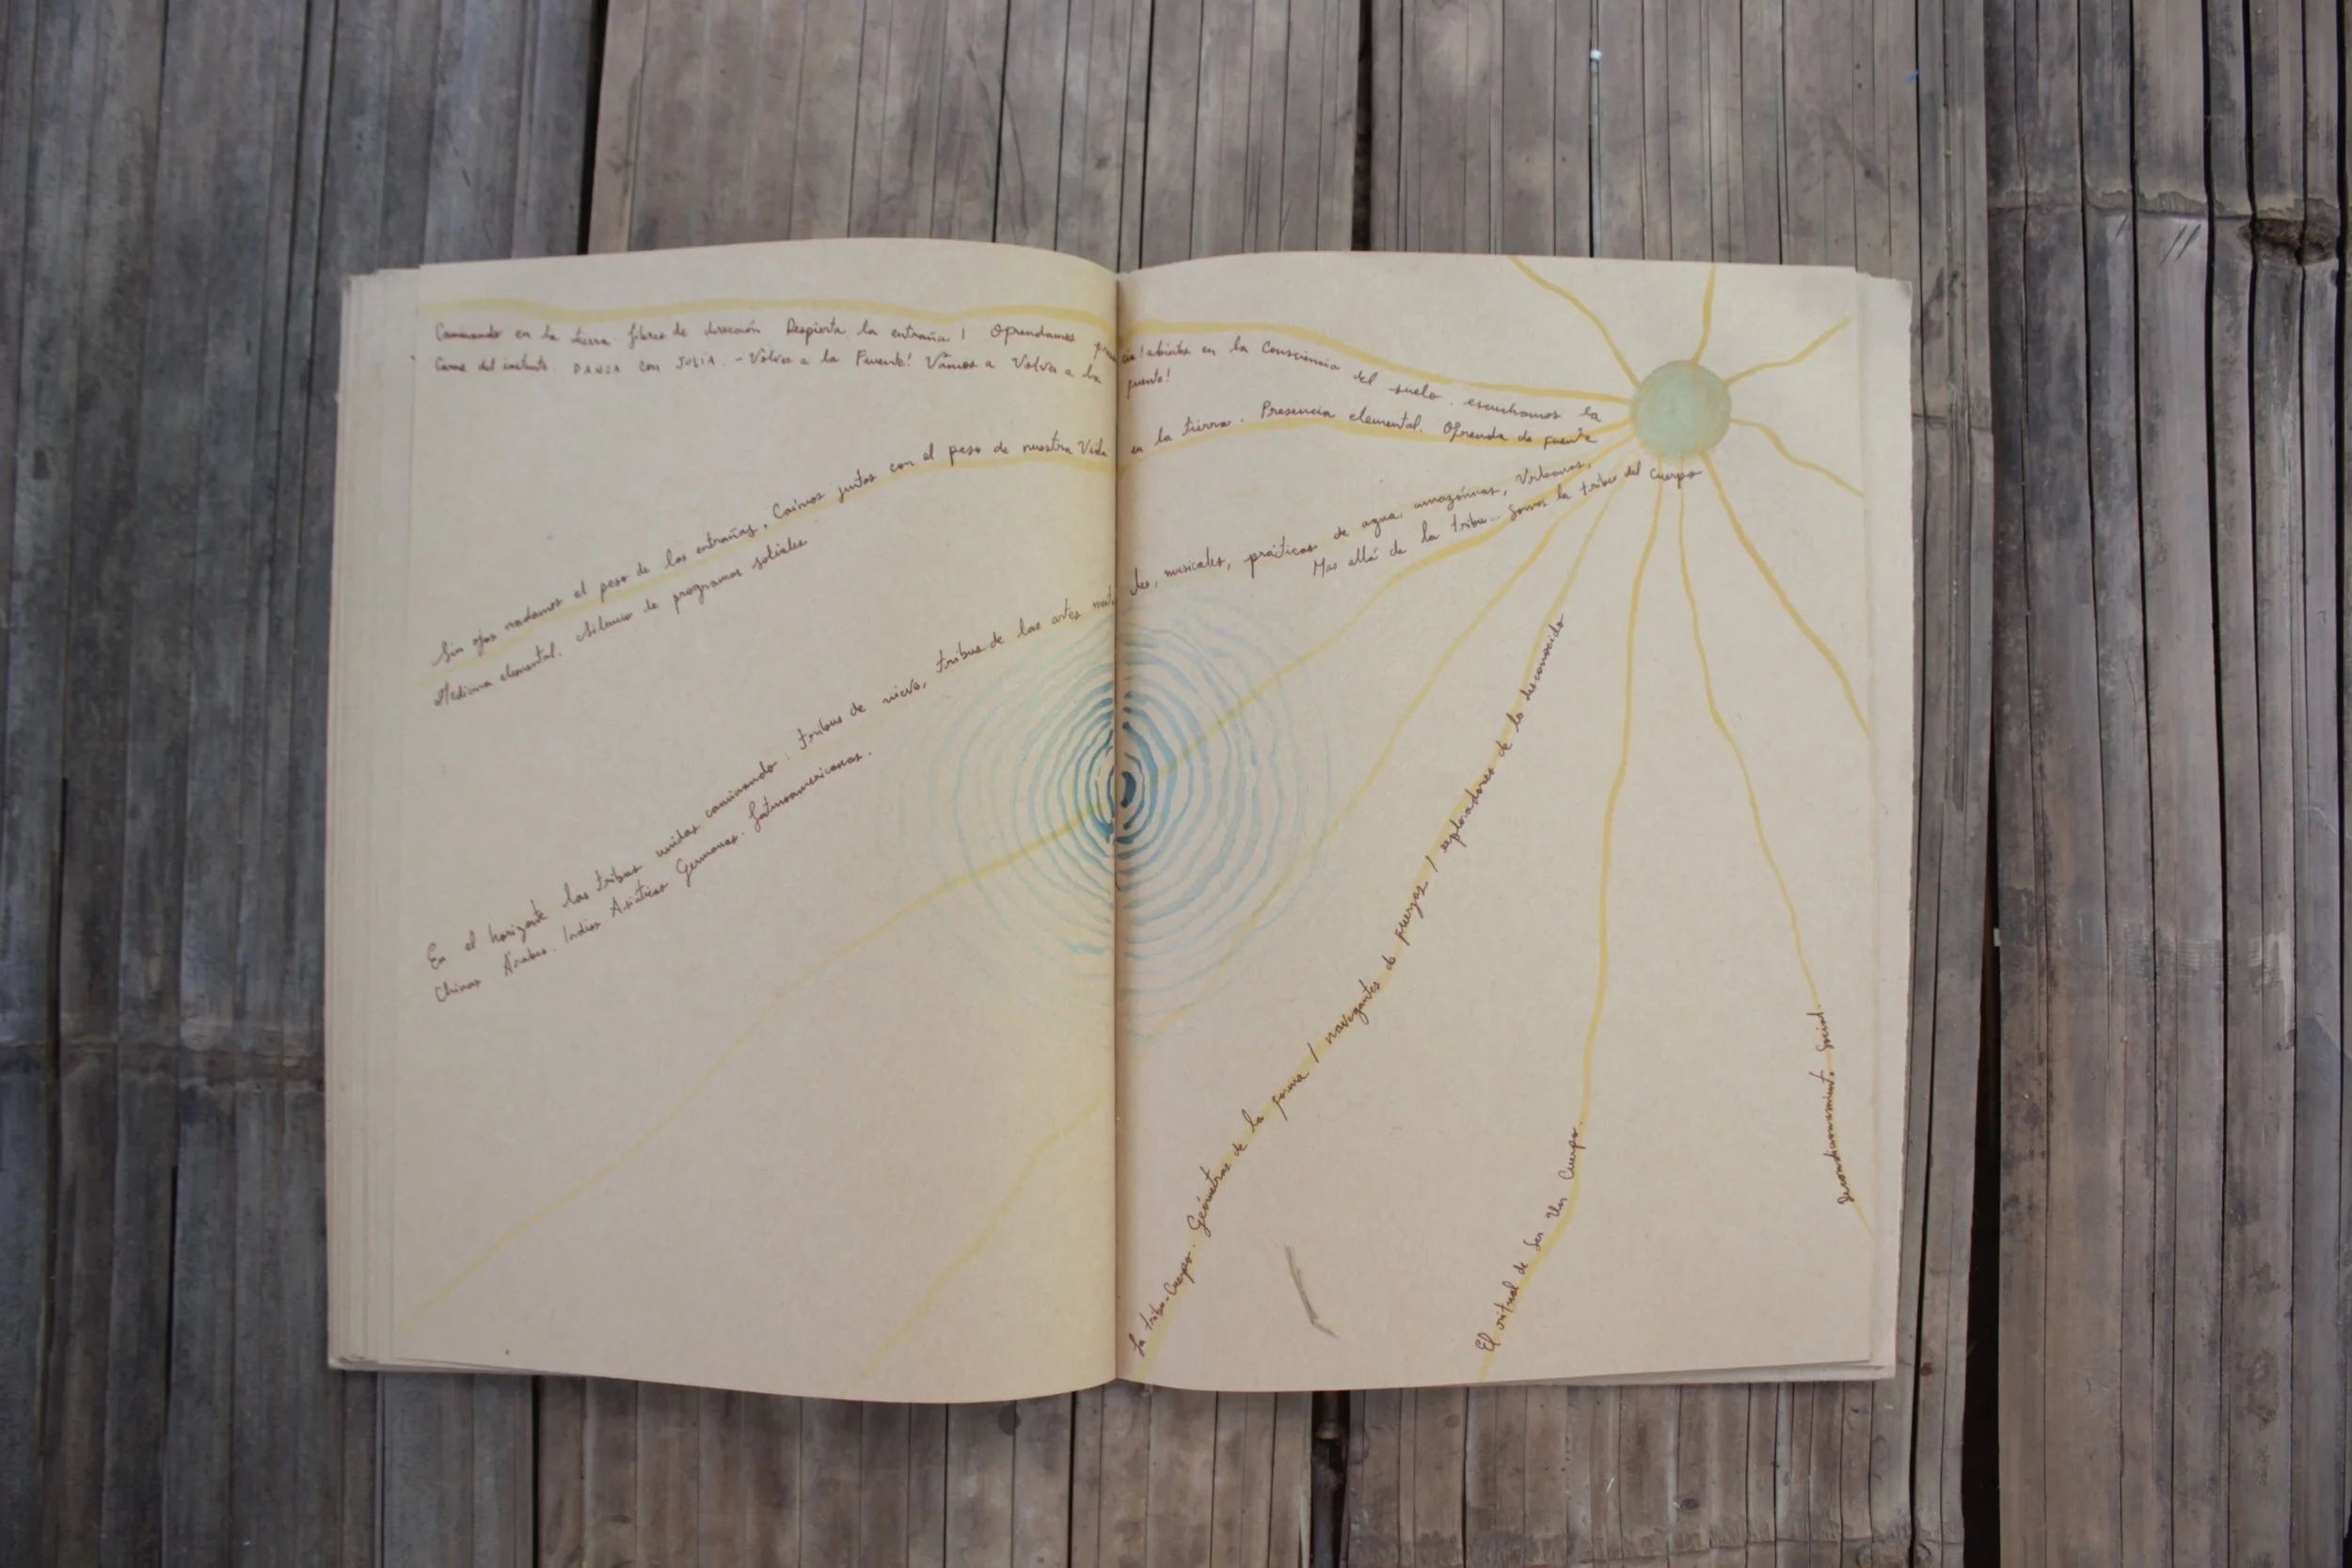 Caminando en la tierra. libres de dirección Despierta la entraña! Ofrendamos abierta en la Consciencia del suelo. escuchamos la
Carne del instante. DANZA con JULIA. - Volver a la Fuente! Vamos a Volver a la fuente!
Sin ojos nadamos el peso de las entrañas, Caímos juntos con el peso de nuestra Vida en la tierra. Presencia elemental. Ofrenda de fuente
Medicina elemental. Silencio de programas sociales
En el horizonte las tribus unidas caminando: tribus de nieve, tribus de las artes musicales, prácticas de agua, amazónicas, Volcanes,
Chinas Árabes. Indios Asiáticos Germanos. Latinoamericanos. Mas allá de la tribu... Somos la tribu del Cuerpo
La tribu-Cuerpo. Geómetras de la forma / navegantes de fuerzas / exploradores de lo desconocido
El ritual de Ser Un Cuerpo.
Descondicionamiento Social.